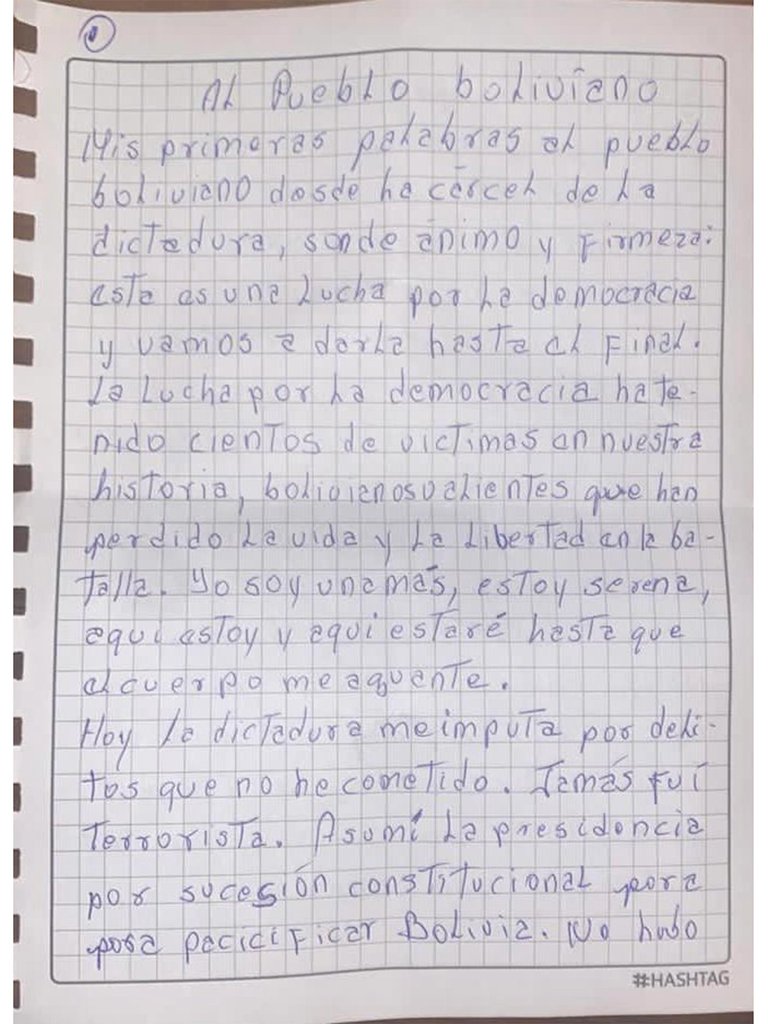 1
Al Pueblo boliviano
Mis primeras palabras al pueblo
boliviano desde la cárcel de la
dictadura, son de ánimo y firmeza:
esta es una lucha por la democracia
y vamos a darla hasta el final.
La lucha por la democracia ha te-
nido cientos de victimas en nuestra
historia, bolivianos valientes que han
perdido la vida y la libertad en la ba-
talla. Yo soy una más, estoy serena,
aquí estoy y aquí estaré hasta que
el cuerpo me aguante.
Hoy la dictadura me imputa por deli-
tos que no he cometido. Jamás fuí
terrorista. Asumí la presidencia
por sucesión constitucional para
para pacicificar Bolivia. No hubo
#HASHTAG